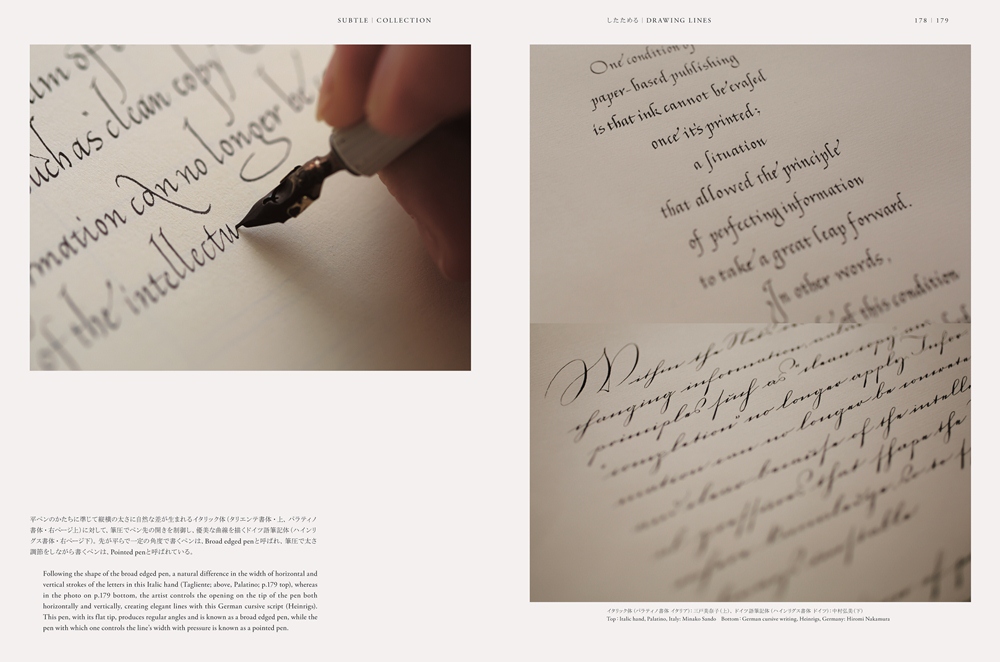 SUBTLE | COLLECTION
such as clean copy
mation can no longer be
of the intellectu
平ペンのかたちに準じて縦横の太さに自然な差が生まれるイタリック体（タリエンテ書体・上, パラティノ
書体・右ページ上）に対して, 筆圧でペン先の開きを制御し, 優美な曲線を描くドイツ語筆記体（ハインリ
グス書体・右ページ下）。先が平らで一定の角度で書くペンは, Broad edged penと呼ばれ, 筆圧で太さ
調節をしながら書くペンは, Pointed penと呼ばれている。
Following the shape of the broad edged pen, a natural difference in the width of horizontal and
vertical strokes of the letters in this Italic hand (Tagliente; above, Palatino; p.179 top), whereas
in the photo on p.179 bottom, the artist controls the opening on the tip of the pen both
horizontally and vertically, creating elegant lines with this German cursive script (Heinrigs).
This pen, with its flat tip, produces regular angles and is known as a broad edged pen, while the
pen with which one controls the line's width with pressure is known as a pointed pen.
したためる | DRAWING LINES
178 | 179
One condition of
paper-based publishing
is that ink cannot be erased
once it's printed;
a situation
that allowed the principle
of perfecting information
to take a great leap forward.
In other words,
of this condition
Within the
changing information
principles such as "clean copy"
"completion" no longer apply. Infor
mation can no longer be concrete
because of the intell
that shape the
イタリック体（パラティノ書体 イタリア）：三戸美奈子（上）, ドイツ語筆記体（ハインリグス書体 ドイツ）：中村弘美（下）
Top : Italic hand, Palatino, Italy: Minako Sando Bottom : German cursive writing, Heinrigs, Germany: Hiromi Nakamura